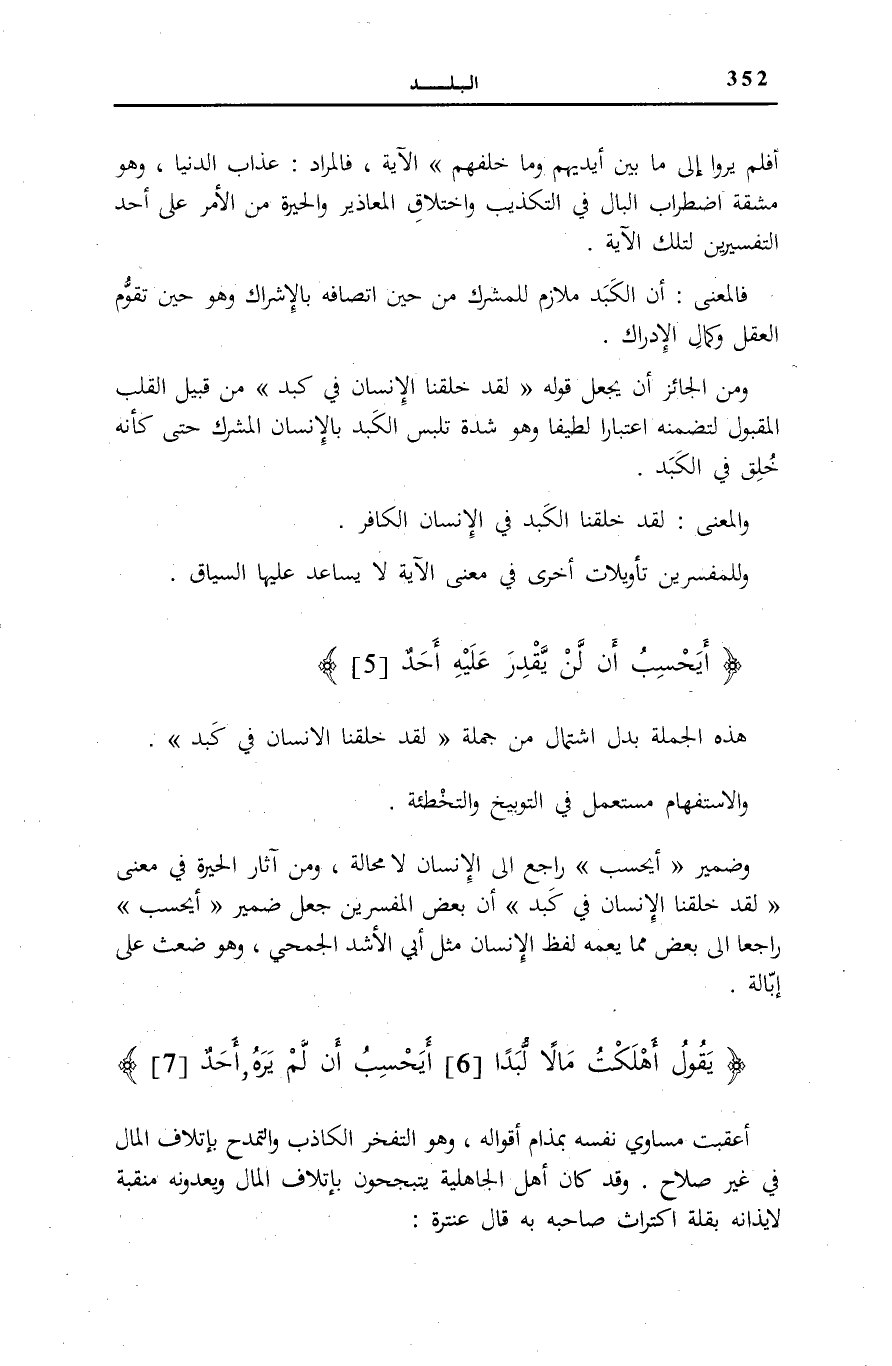 352
البلـــــد
أفلم يروا إلى ما بين أيديهم وما خلفهم » الآية ، فالمراد : عذاب الدنيا ، وهو
مشقة اضطراب البال في التكذيب واختلاقِ المعاذير والحيرة من الأمر على أحد
التفسيرين لتلك الآية .
فالمعنى : أن الكَبَد ملازم للمشرك من حين اتصافه بالإشراك وهو حين تقوُّم
العقل وكمالِ الإدراك .
ومن الجائز أن يجعل قوله « لقد خلقنا الإنسان في كبد » من قبيل القلب
المقبول لتضمنه اعتبارا لطيفا وهو شدة تلبس الكَبد بالإنسان المشرك حتى كأنه
خُلِق في الكَبَد .
والمعنى : لقد خلقنا الكَبد في الإنسان الكافر .
وللمفسرين تأويلات أخرى في معنى الآية لا يساعد عليها السياق .
﴿ أَيَحْسِبُ أَن لَّنْ يَّقْدِرَ عَلَيْهِ أَحَدٌ [5] ﴾
هذه الجملة بدل اشتمال من جملة « لقد خلقنا الانسان في كَبد » .
والاستفهام مستعمل في التوبيخ والتخْطئة .
وضمير « أيحسب » راجع الى الإنسان لا محالة ، ومن آثار الحيرة في معنى
« لقد خلقنا الإنسان في كَبد » أن بعض المفسرين جعل ضمير « أيحسب »
راجعا الى بعض مما يعمه لفظ الإنسان مثل أبي الأشد الجمحي ، وهو ضغث على
إبّالة .
﴿ يَقُولُ أَهْلَكْتُ مَالًا لُّبَدًا [6] أَيَحْسِبُ أَن لَّمْ يَرَهُۥ أَحَدٌ [7] ﴾
أعقبت مساوي نفسه بمذام أقواله ، وهو التفخر الكاذب والتمدح بإتلاف المال
في غير صلاح . وقد كان أهل الجاهلية يتبجحون بإتلاف المال ويعدونه منقبة
لايذانه بقلة اكتراث صاحبه به قال عنترة :